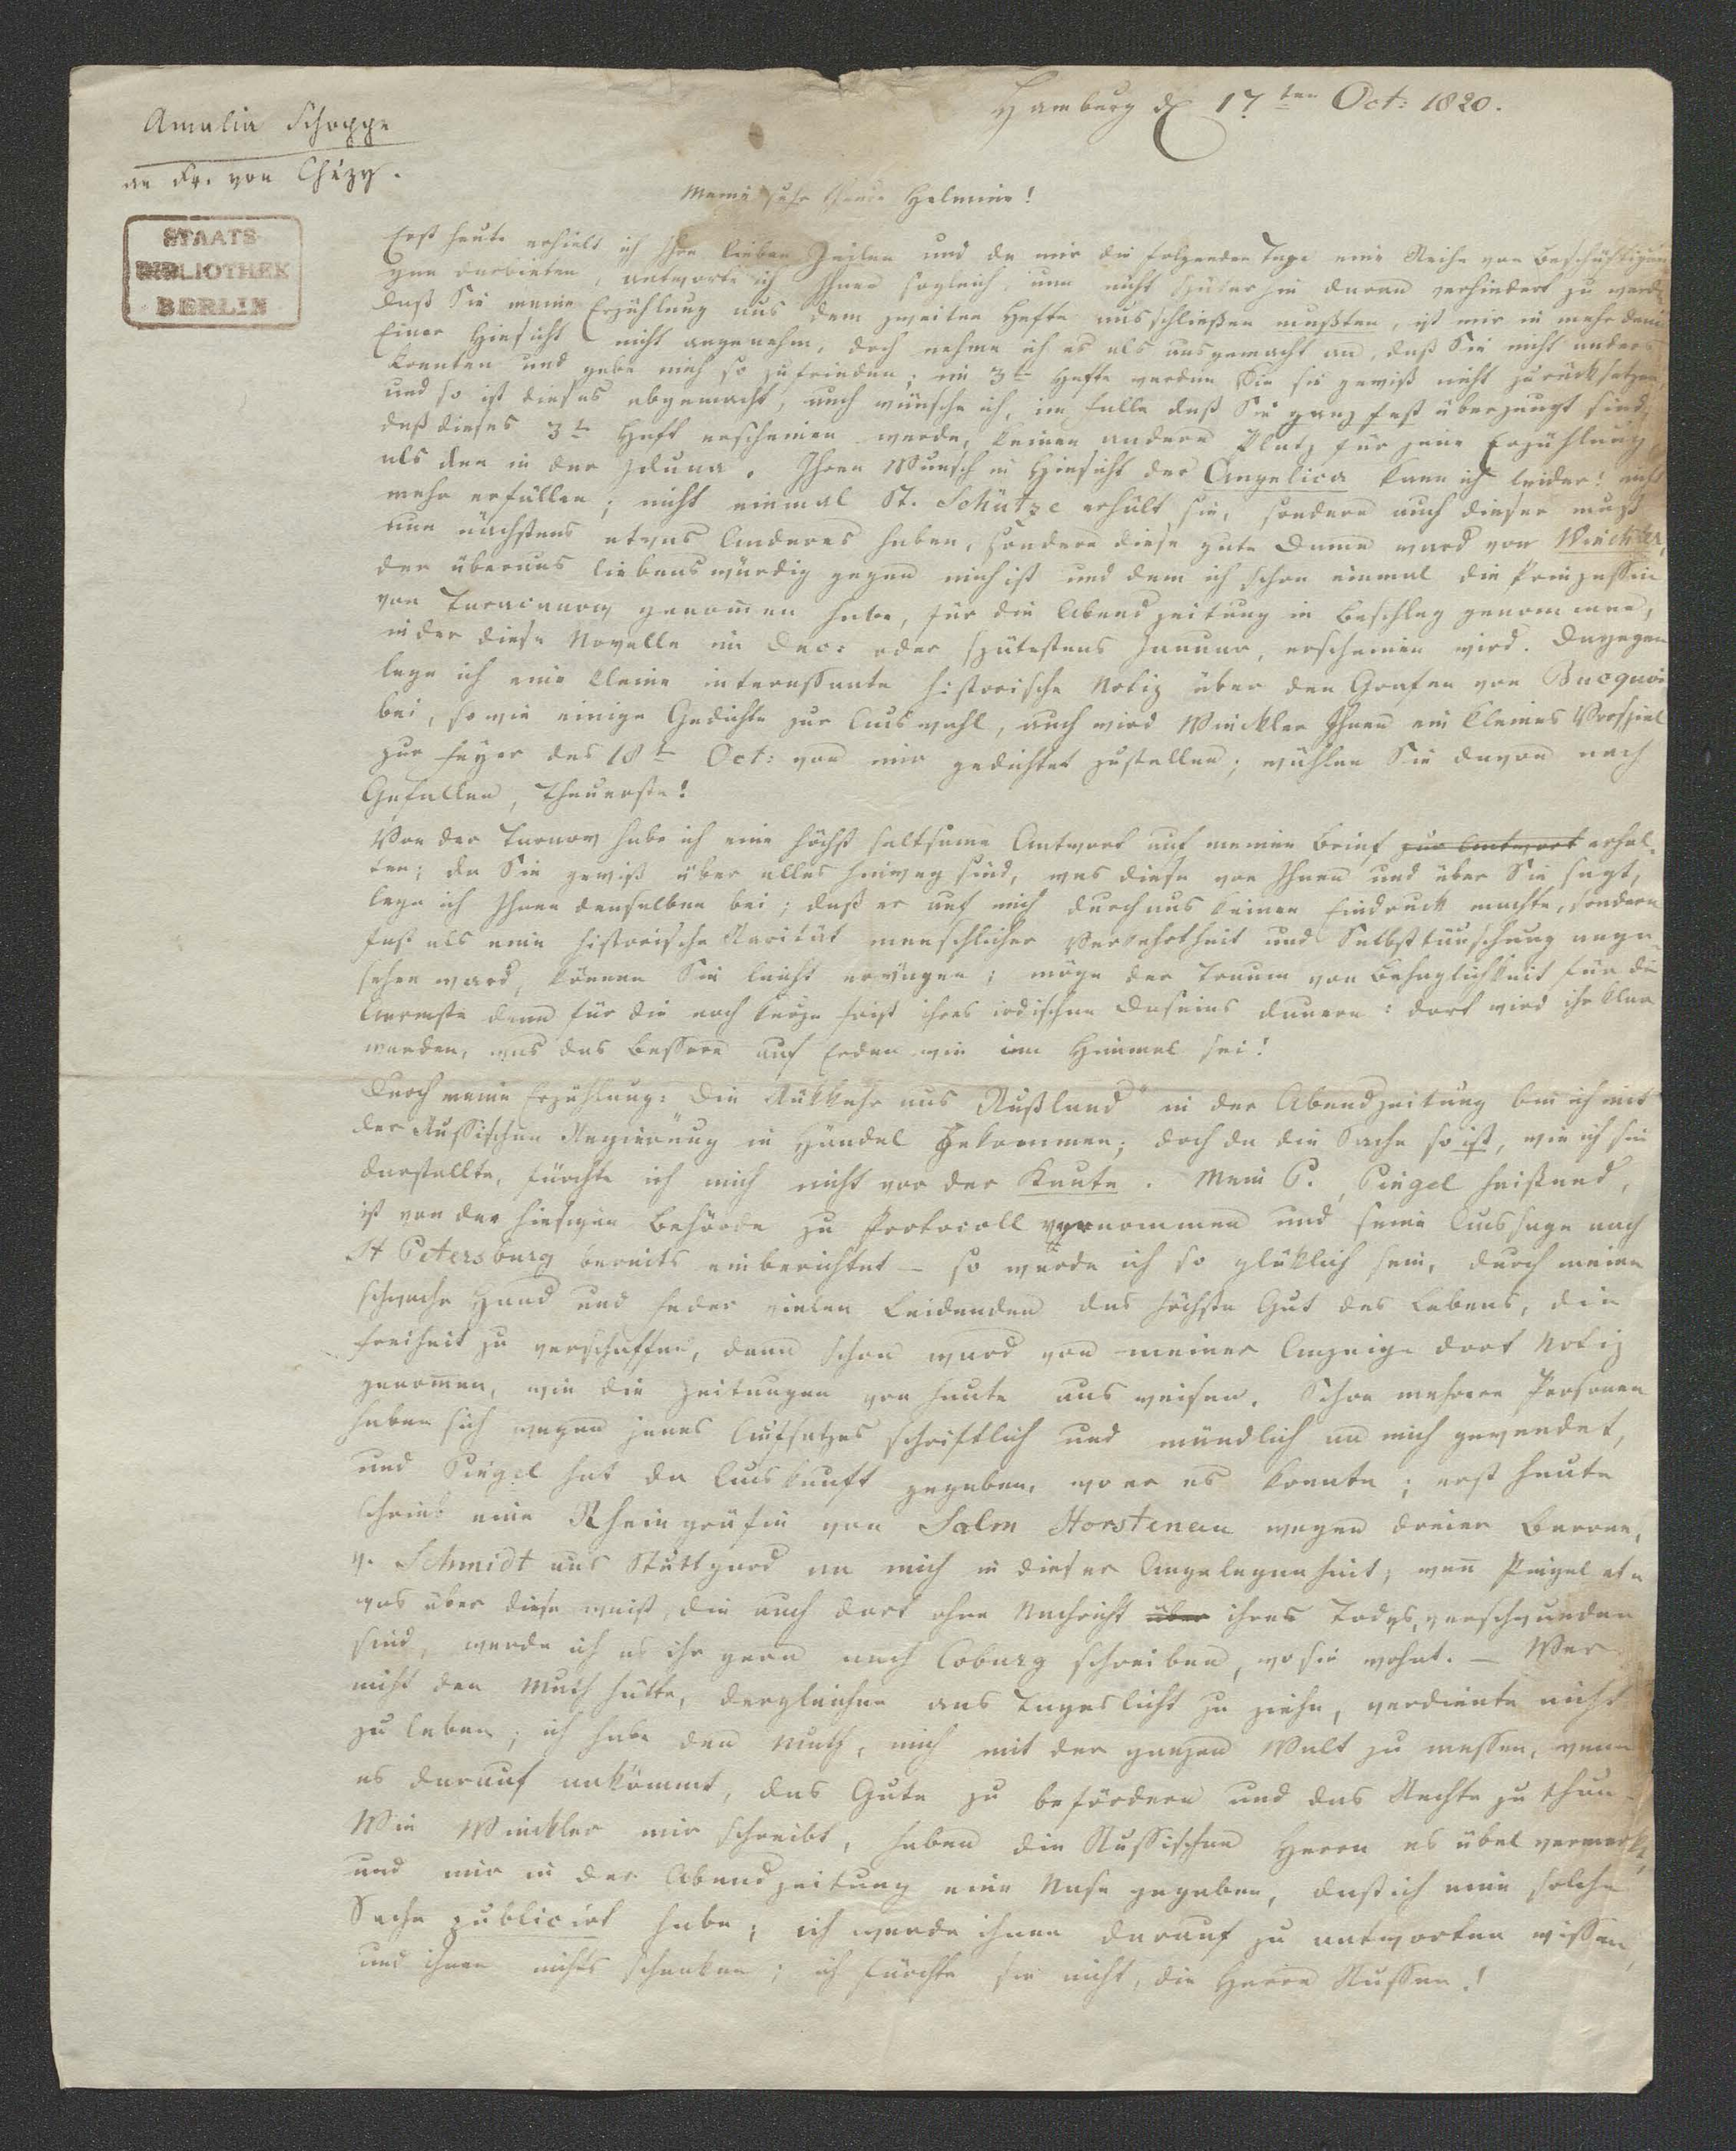 Amalia Schoppe
an Fr. von Chézy.
STAATS-
BIBLIOTHEK
BERLIN
Hamburg d 17ten Oct: 1820.
Meine sehr theure Helmine!
Erst heute erhielt ich Ihre lieben Zeilen und da mir die folgenden Tage eine Reihe von Beschäftigun
gen darbieten, antworte ich Ihnen sogleich, um nicht späterhin daran verhindert zu werden
daß Sie meine Erzählung aus dem zweiten Hefte ausschließen mußten, ist mir in mehr denn
Einer Hinsicht nicht angenehm, doch nehme ich es als ausgemacht an, daß Sie nicht anders
konnten und gebe mich so zufrieden; im 3ten Hefte werden Sie sie gewiß nicht zurücksetzen,
und so ist dieses abgemacht, auch wünsche ich, im Falle daß Sie ganz fest überzeugt sind,
daß dieses 3te Heft erscheinen werde, keinen andern Platz für jene Erzählung,
als den in der Iduna. Ihren Wunsch in Hinsicht der Angelica kann ich leider! nicht
mehr erfüllen; nicht einmal St. Schütze erhält sie, sondern auch dieser muß
nun nächstens etwas Anderes haben, sondern diese gute Dame ward von Winckler,
der überaus liebenswürdig gegen mich ist und dem ich schon einmal die Prinzessin
von Taracanow genom̄en habe, für die Abendzeitung in Beschlag genommen,
in der diese Novelle im Dec: oder spätestens Januar, erscheinen wird. Dagegen
lege ich eine kleine interessante historische Notiz über den Grafen von Bucquoi
bei, sowie einige Gedichte zur Auswahl, auch wird Winckler Ihnen ein kleines Vorspiel
zur Feyer des 18ten Oct: von mir gedichtet zustellen; wählen Sie davon nach
Gefallen, Theuerste!
Von der Tarnow habe ich eine höchst seltsame Antwort auf meinen Brief zur Antwort erhal-
ten; da Sie gewiß über alles hinweg sind, was diese von Ihnen und über Sie sagt,
lege ich Ihnen denselben bei; daß er auf mich durchaus keinen Eindruck machte, sondern
fast als eine historische Rarität menschlicher Verkehrtheit und Selbsttäuschung ange-
sehen ward, können Sie leicht erwägen; möge der Traum von Behaglichkeit für die
Aermste denn für die noch kurze Frist ihres irdischen Daseins dauern: dort wird ihr klar
werden, was das Bessere auf Erden wie im Himmel sei!
Durch meine Erzählung: Die Rükkehr aus Rußland" in der Abendzeitung bin ich mit
der Russischen Regierung in Händel gekommen; doch da die Sache so ist, wie ich sie
darstellte, fürchte ich mich nicht vor der Knute. Mein P., Pingel heißend,
ist von der hiesigen Behörde zu Protocoll vernommen und seine Aussage nach
St Petersburg bereits einberichtet – so werde ich so glüklich sein, durch meine
schwache Hand und Feder vielen Leidenden das höchste Gut des Lebens, die
Freiheit zu verschaffen, denn schon ward von meiner Anzeige dort Notiz
genom̄en, wie die Zeitungen von heute ausweisen. Schon mehrere Personen
haben sich wegen jenes Aufsatzes schriftlich und mündlich an mich gewendet,
und Pingel hat da Auskunft gegeben, wo er es konnte; erst heute
schrieb eine Rheingräfin von Salm Horstenau wegen dreier Barone,
v. Schmidt aus Stuttgard an mich in dieser Angelegenheit; wen̄ Pingel et-
was über diese weiß, die auch dort ohne Nachricht über ihres Todes, verschwunden
sind, werde ich es ihr gern nach Coburg schreiben, wo sie wohnt. – Wer
nicht den Muth hätte, dergleichen ans Tageslicht zu ziehn, verdiente nicht
zu leben; ich habe den Muth, mich mit der ganzen Welt zu messen, wenn
es darauf ankömmt, das Gute zu befördern und das Rechte zu thun –
Wie Winckler mir schreibt, haben die Russischen Herrn es übel vermerkt,
und mir in der Abendzeitung eine Nase gegeben, daß ich eine solche
Sache publicirt habe; ich werde ihnen darauf zu antworten wissen,
und ihnen nichts schenken; ich fürchte sie nicht, die Herrn Russen!